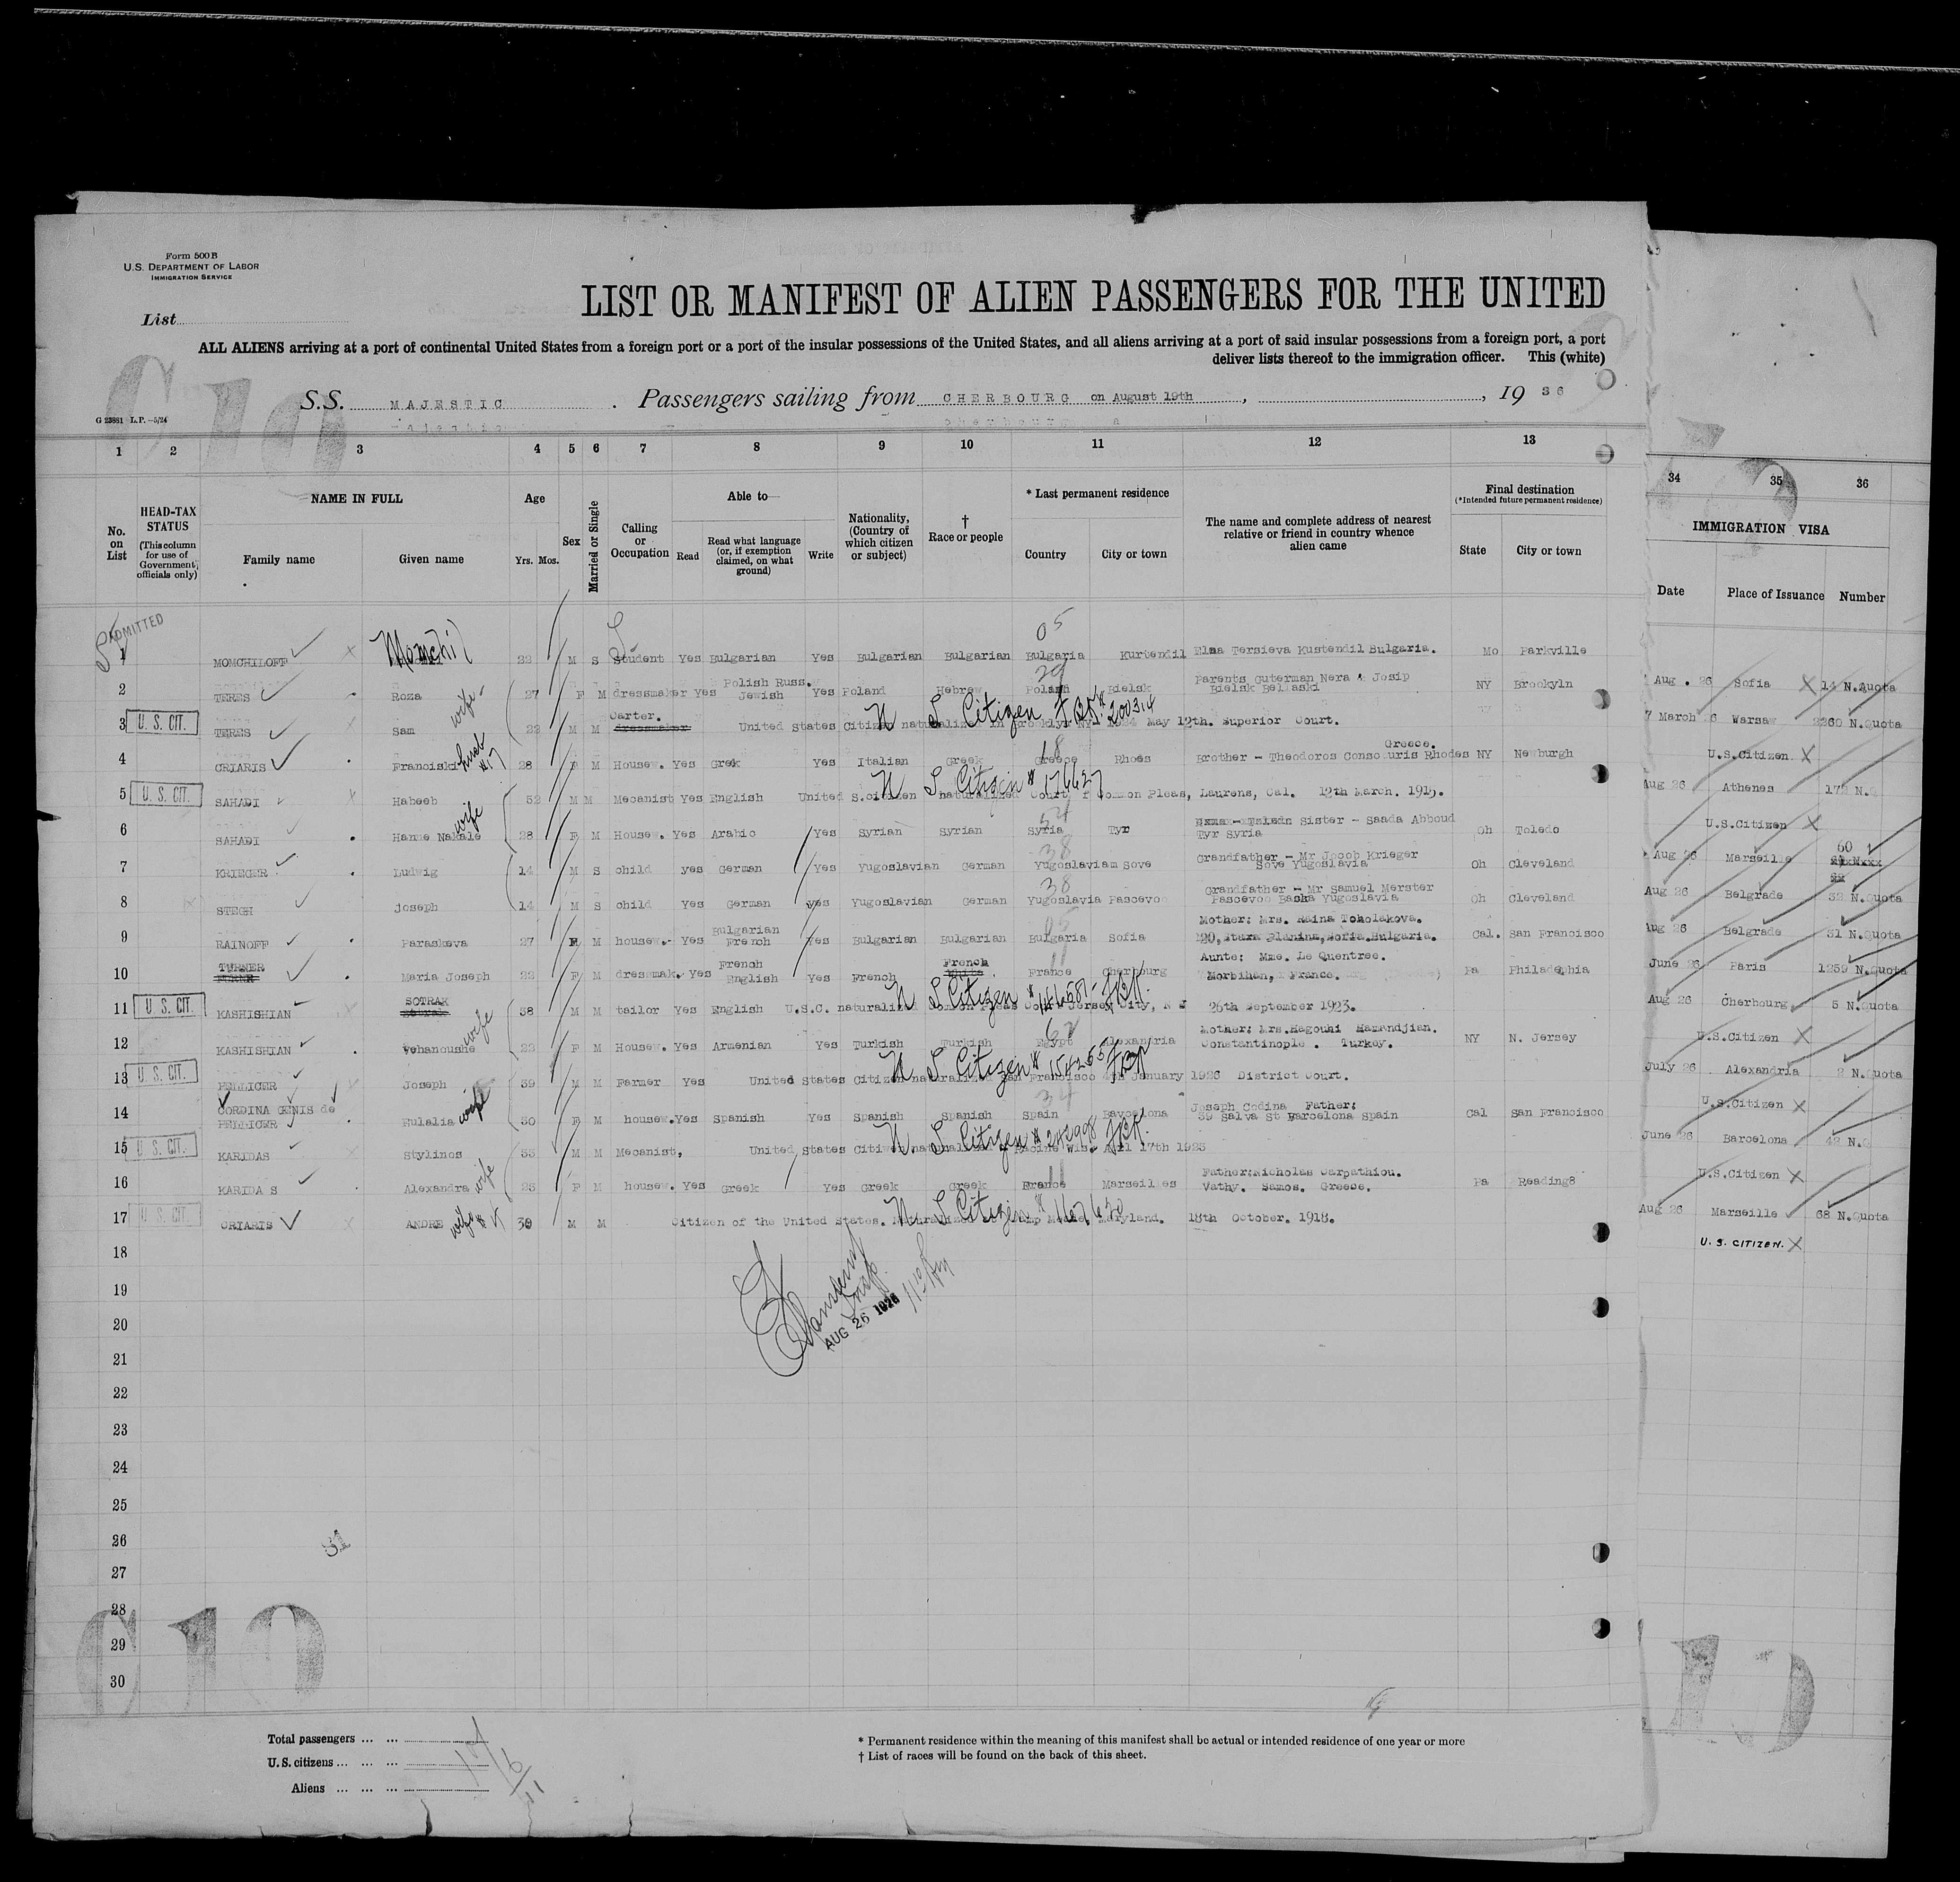 Form 500 B
U.S. DEPARTMENT OF LABOR
IMMIGRATION SERVICE
List
LIST OR MANIFEST OF ALIEN PASSENGERS FOR THE UNITED
ALL ALIENS arriving at a port of continental United States from a foreign port or a port of the insular possessions of the United States, and all aliens arriving at a port of said insular possessions from a foreign port, a port
deliver lists thereof to the immigration officer. This (white)
S.S. MAJESTIC . Passengers sailing from CHERBOURG on August 19th, , 19 36
G 23861 L.P.—5/24
1 2 3 4 5 6 7 8 9 10 11 12 13 34 35 36
No. on List
HEAD-TAX STATUS (This column for use of Government officials only)
NAME IN FULL
Family name Given name
Age
Yrs. Mos.
Sex
Married or Single
Calling or Occupation
Able to
Read Read what language (or, if exemption claimed, on what ground) Write
Nationality, (Country of which citizen or subject)
† Race or people
* Last permanent residence
Country City or town
The name and complete address of nearest relative or friend in country whence alien came
Final destination
(*Intended future permanent residence)
State City or town
IMMIGRATION VISA
Date Place of Issuance Number
ADMITTED
1 MOMCHILOFF Momchil 22 M S Student Yes Bulgarian Yes Bulgarian Bulgarian Bulgaria 05 Kurtendil Elna Tersieva Kustendil Bulgaria. Mo Parkville
2 TERES Roza wife 27 F M dressmaker Yes Polish Russ. Jewish Yes Poland Hebrew Poland 29 Bielsk Parents Guterman Nera & Josip Bielsk NY Brookyln
3 U. S. CIT. TERES Sam 22 M M Carter. dressmaker United States Citizen naturalized in May 12th. Superior Court. N S Citizen # 200314
4 CRIARIS Franciski husb #17 28 F M Housew. Yes Grek Yes Italian Greek Greece 18 Rhoes Brother - Theodoros Consoturis Rhodes Greece. NY Newburgh
5 U. S. CIT. SAHADI Habeeb 52 M M Mecanist Yes English United S.citizen naturalized Court f Common Pleas, Laurens, Cal. 19th March. 1915. N S Citizen # 176627
6 SAHADI Hanne Nakale wife 28 F M Housew. Yes Arabic Yes Syrian Syrian Syria Tyr Sister - Saada Abboud Tyr Syria Oh Toledo
7 KRIEGER Ludwig 14 M S child yes German Yes Yugoslavian German Yugoslaviam 38 Sove Grandfather - Mr Jocob Krieger Sove Yugoslavia Oh Cleveland
8 STEGH joseph 14 M S child Yes German yes Yugoslavian German Yugoslavia 38 Pascevoo Grandfather - Mr Samuel Merster Pascevoo Baska Yugoslavia Oh Cleveland
9 RAINOFF Paraskeva 27 F M housew.- Yes Bulgarian French Yes Bulgarian Bulgarian Bulgaria 05 Sofia Mother: Mrs. Raina Tcholakova. 20, Stara Planina, Sofia.Bulgaria. Cal. San Francisco
10 TURNER Maria Joseph 22 F M dressmak. Yes French English Yes French French White France 11 Cherbourg Aunte: Mme. Le Quentree. Morbihan, France. Pa Philadephia
11 U. S. CIT. KASHISHIAN SOTRAK 38 M M tailor Yes English U.S.C. naturalized Jersey City, N J 26th September 1923. N S Citizen #
12 KASHISHIAN Vehanoushe wife 22 F M Housew. Yes Armenian Yes Turkish Turkish Egypt 62 Alexandria Mother: Mrs.Magouhi Hamandjian. Constantinople . Turkey. NY N. Jersey
13 U. S. CIT. PELLICER Joseph 39 M M Farmer Yes United States Citizen naturalized San Francisco 4th January 1926 District Court. N S Citizen #
14 CORDINA GENIS de PELLICER Eulalia wife 30 F M housew. Yes Spanish Yes Spanish Spanish Spain 34 Bavcelona Joseph Codina Father; 39 Salva St Barcelona Spain Cal San Francisco
15 U. S. CIT. KARIDAS Stylinos 33 M M Mecanist, United States Citizen naturalized Racine Wis. April 17th 1923 N S Citizen # 242998
16 KARIDA S Alexandra wife 23 F M housew. Yes Greek Yes Greek Greek France 11 Marseilles Father:Nicholas Carpathiou. Vathy. Samos. Greece. Pa Reading8
17 U. S. CIT. CRIARIS ANDRE wife 39 M M Citizen of the United States. Naturalized Camp Meade Maryland. 18th October. 1918. N S Citizen #
Aug . 26 Sofia 14 N.Quota
7 March 26 Warsaw 2260 N.Quota
U.S.Citizen X
Aug 26 Athenes 172 N.Q
U.S.Citizen X
Aug 26 Marseille 60
Aug 26 Belgrade 32 N.Quota
Aug 26 Belgrade 31 N.Quota
June 26 Paris 1259 N.Quota
Aug 26 Cherbourg 5 N.Quota
U.S.Citizen X
July 26 Alexandria 2 N.Quota
U.S.Citizen X
June 26 Barcelona 42 N.Q
U.S.Citizen X
Aug 26 Marseille 68 N.Quota
U. S. CITIZEN. X
18
19
20
21
22
23
24
25
26
27
28
29
30
AUG 26 1926
31
C10
Total passengers ... ... 17
U.S. citizens ... ... ... 6
Aliens ... ... ... 11
* Permanent residence within the meaning of this manifest shall be actual or intended residence of one year or more
† List of races will be found on the back of this sheet.